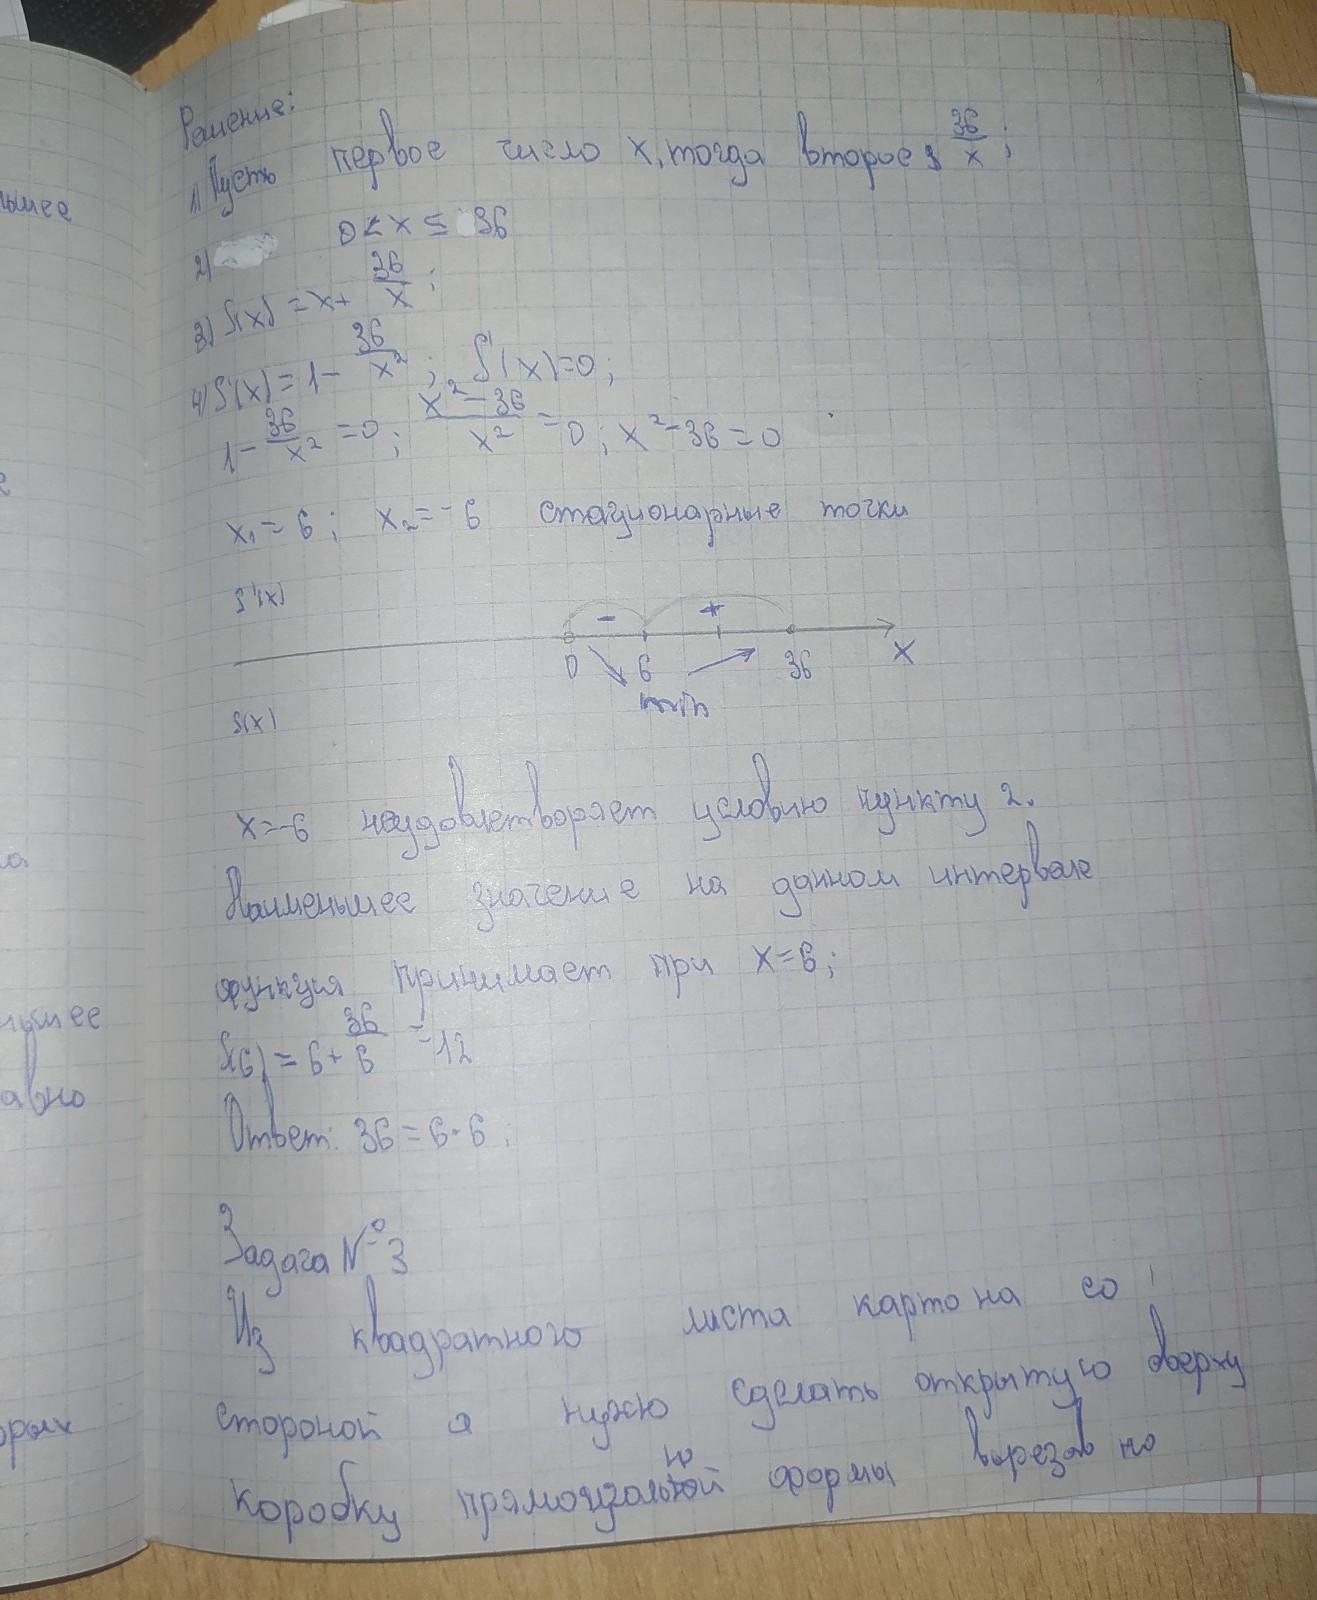 Решение:
1) Пусть первое число x, тогда второе 36/x;
2) 0 < x ≤ 36
3) S(x) = x + 36/x;
4) S'(x) = 1 - 36/x²; S'(x)=0;
1 - 36/x² = 0; (x² - 36)/x² = 0; x² - 36 = 0
x₁ = 6; x₂ = -6 стационарные точки
S'(x)
- +
0 6 36 x
min
S(x)
x=-6 неудовлетворяет условию пункту 2.
Наименьшее значение на данном интервале
функция принимает при x=6;
S(6) = 6 + 36/6 = 12
Ответ: 36 = 6·6;
Задача №3
Из квадратного листа картона со
стороной a нужно сделать открытую сверху
коробку прямоугольной формы вырезав по
ньшее
авно
орых